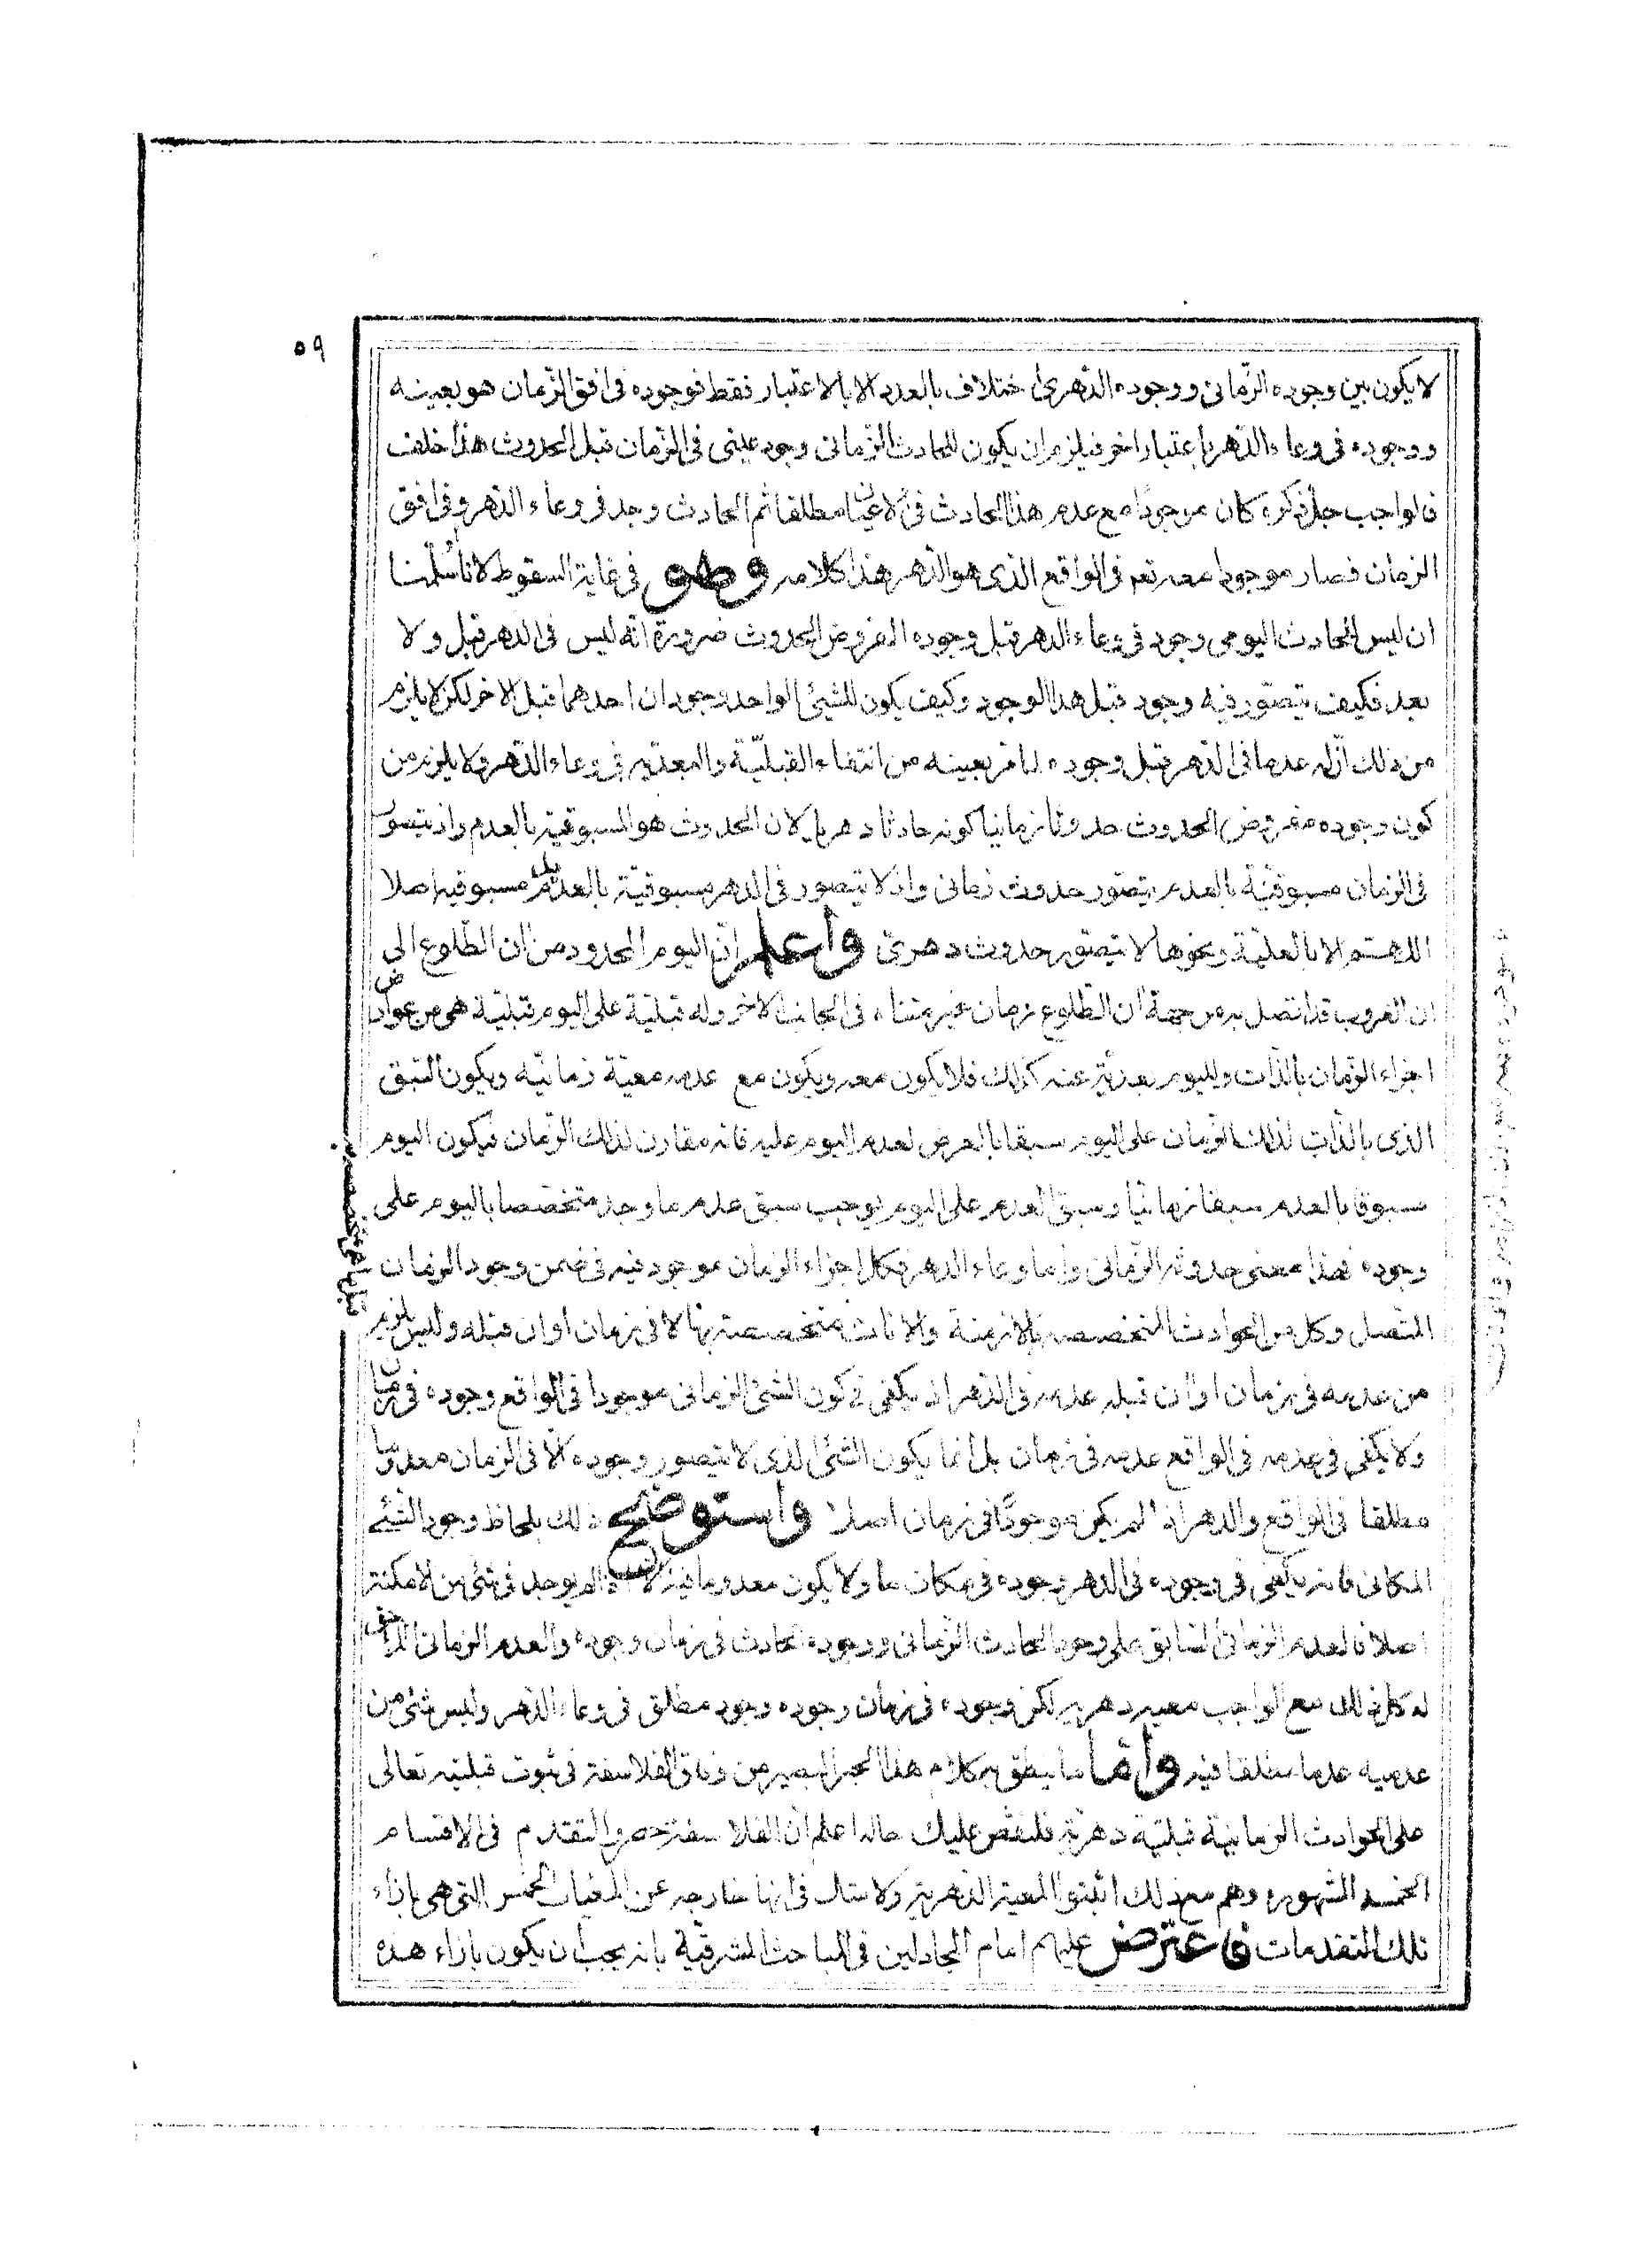 ٥٩
لا يكون بين وجوده الزّمانى ووجوده الدّهرىّ اختلاف بالعدد الا بالاعتبار فقط فوجوده فى افق الزّمان هو بعينه
ووجوده فى وعاء الدّهر باعتبار اخر فيلزم ان يكون للحادث الزّمانى وجود عينى فى الزّمان قبل الحدوث هذا خلف
فالواجب جلّ ذكره كان موجودا مع عدم هذا الحادث فى الاعيان مطلقا ثم الحادث وجد فى وعاء الدّهر وفى افق
الزمان فصار موجودا معه تعم فى الواقع الذى هو الدّهر هذا كلامه وهو فى غاية السقوط لانا سلّمنا
ان ليس للحادث اليومى وجود فى وعاء الدهر قبل وجوده المفروض الحدوث ضرورة انّه ليس فى الدهر قبل ولا
بعد فكيف يتصّور فيه وجود قبل هذا الوجود وكيف يكون للشيئ الواحد وجودان احدهما قبل الاخر لكن لا يلزم
من ذلك انّ له عدما فى الدّهر قبل وجوده لما مرّ بعينه من انتفاء القبليّة والبعديّه فى وعاء الدّهر ولا يلزم من
كون وجوده مفروض الحدوث حدوثا زمانيا كونه حادثا دهريا لان الحدوث هو المسبوقيّه بالعدم واذ يتصور
فى الزمان مسبوقيّة بالعدم يتصّور حدوث زمانى واذ لا يتصور فى الدهر مسبوقيّة بالعدم بل مسبوقيه اصلا
اللهمّ الا بالعليّة ونحوها لا يتصّور حدوث دهرىّ واعلم انّ اليوم المحدود من ان الطّلوع الى
ان الغروب قد اتصل به من جهة ان الطّلوع زمان غير متناه فى الجانب الاخر وله قبليّة على اليوم قبليّة هى من عوارض
اجزاء الزّمان بالذّات ولليوم بعديّة عنه كذلك فلا يكون معه ويكون مع عدمه معيّة زمانيّه ويكون السّبق
الذى بالذّات لذلك الزّمان على اليوم سبقا بالعرض لعدم اليوم عليه فانه مقارن لذلك الزّمان فيكون اليوم
مسبوقا بالعدم سبقا زمانيّا وسبق العدم على اليوم يوجب سبق عدم ما وجد متخصّصا باليوم على
وجوده فهذا معنى حدوثه الزّمانى واما وعاء الدهر فكل اجزاء الزمان موجود فيه فى ضمن وجود الزمان
المتّصل وكل من الحوادث المتخصصه بالازمنة والانات متخصصة بها لا فى زمان او ان قبله وليس يلزم
من عدمه فى زمان او ان قبله عدمه فى الدّهر اذ يكفى فى كون الشّئ الزمانى موجودا فى الواقع وجوده فى زمان
ولا يكفى فى عدمه فى الواقع عدمه فى زمان بل انّما يكون الشّئ الذى لا يتصور وجوده الّا فى الزمان معدوما
مطلقا فى الواقع والدهر اذا لم يكن موجودًا فى زمان اصلا واستوضح ذلك بلحاظ وجود الشّئ
المكانى فانه يكفى فى وجوده فى الدهر وجوده فى مكان ما ولا يكون معدوما فيه الا اذا لم يوجد فى شئ من الامكنة
اصلا فالعدم الزمانىّ السّابق على وجود الحادث الزّمانى ووجود الحادث فى زمان وجوده والعدم الزمانى اللاحق
له كل ذلك مع الواجب معيه دهريه لكن وجوده فى زمان وجوده وجود مطلق فى وعاء الدّهر وليس شئ من
عدميه عدما مطلقا فيه وامّا ما ينطق به كلام هذا الحبر البصير من وفاق الفلاسفة فى ثبوت قبليّته تعالى
على الحوادث الزمانيّة قبليّة دهريّة فلنقصّ عليك حاله اعلم انّ الفلاسفة حصروا التّقدم فى الاقسام
الخمسة المشهوره وهم مع ذلك اثبتوا المعية الدّهرية ولا شك فى انها خارجه عن المعيات الخمس التى هى بازاء
تلك التقدمات فاعترض عليهم امام المجادلين فى المباحث المشرقيّة بانه يجب ان يكون بازاء هذه